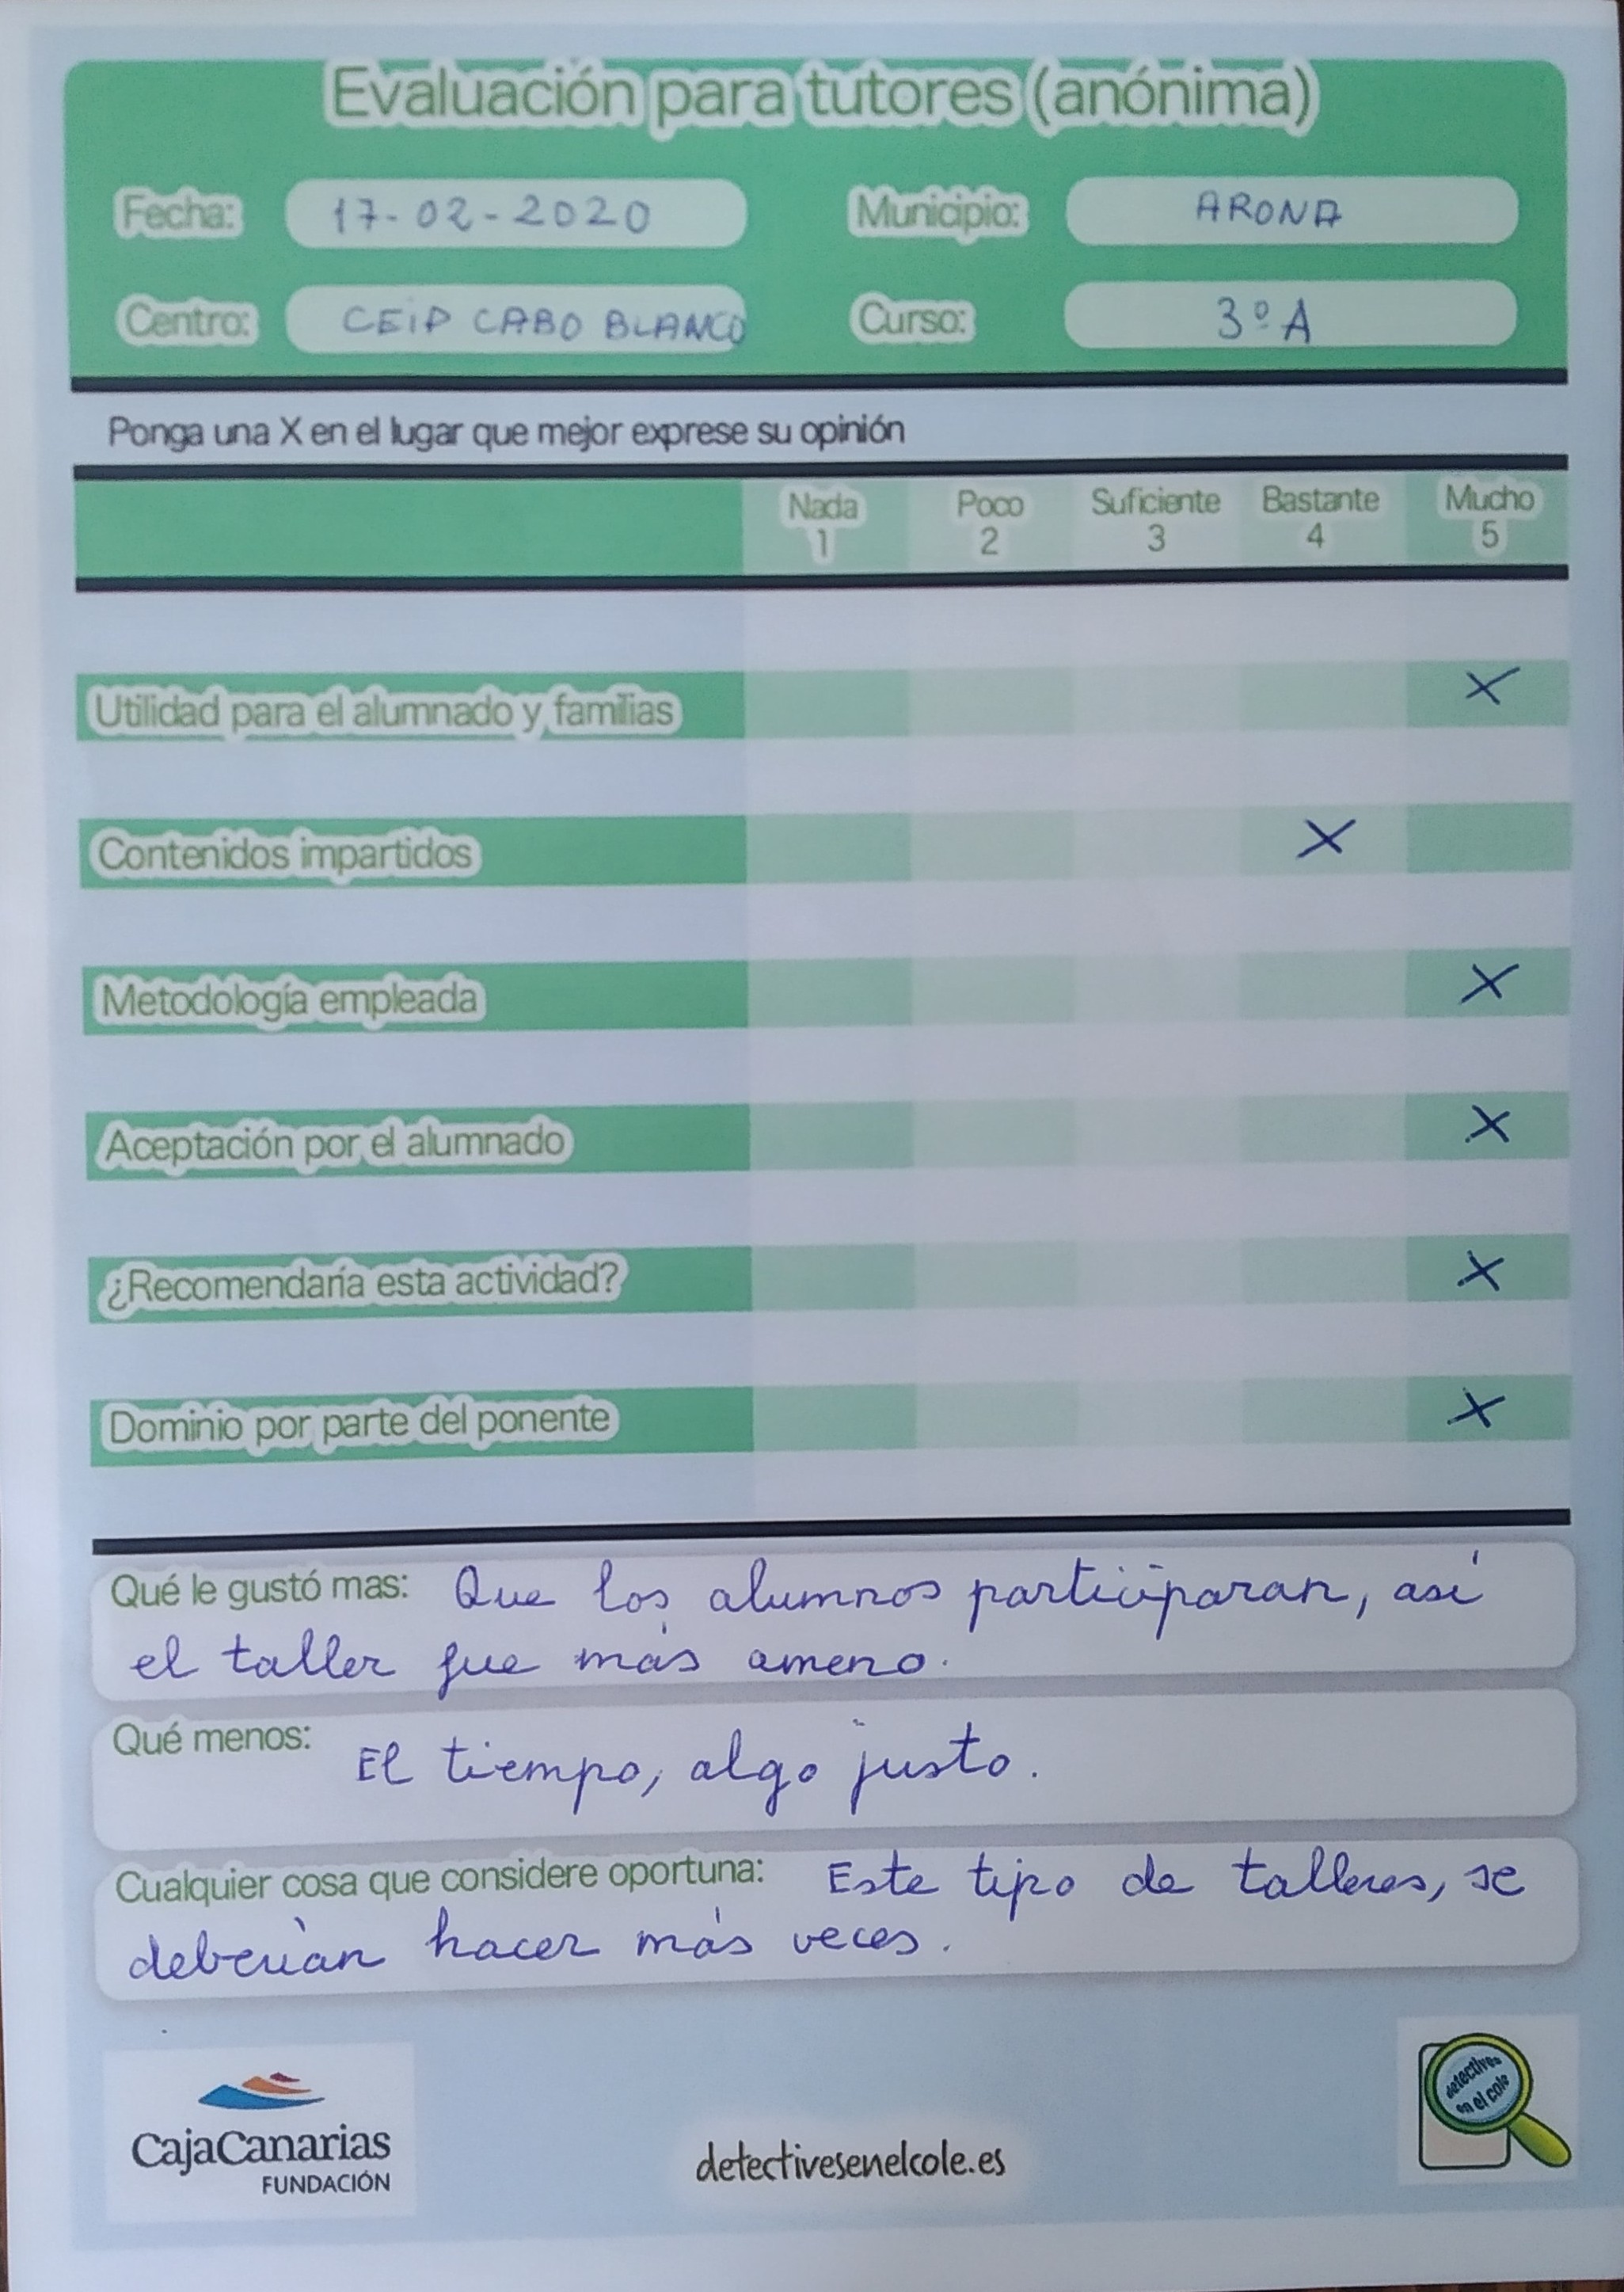 Evaluación para tutores (anónima)
Fecha: 17-02-2020 Municipio: ARONA
Centro: CEIP CABO BLANCO Curso: 3º A
Ponga una X en el lugar que mejor exprese su opinión
Nada Poco Suficiente Bastante Mucho
1 2 3 4 5
Utilidad para el alumnado y familias X
Contenidos impartidos X
Metodología empleada X
Aceptación por el alumnado X
¿Recomendaría esta actividad? X
Dominio por parte del ponente X
Qué le gustó mas: Que los alumnos participaran, así
el taller fue más ameno.
Qué menos: El tiempo, algo justo.
Cualquier cosa que considere oportuna: Este tipo de talleres, se
deberían hacer más veces.
CajaCanarias
FUNDACIÓN
detectivesenelcole.es
detectives
en el cole